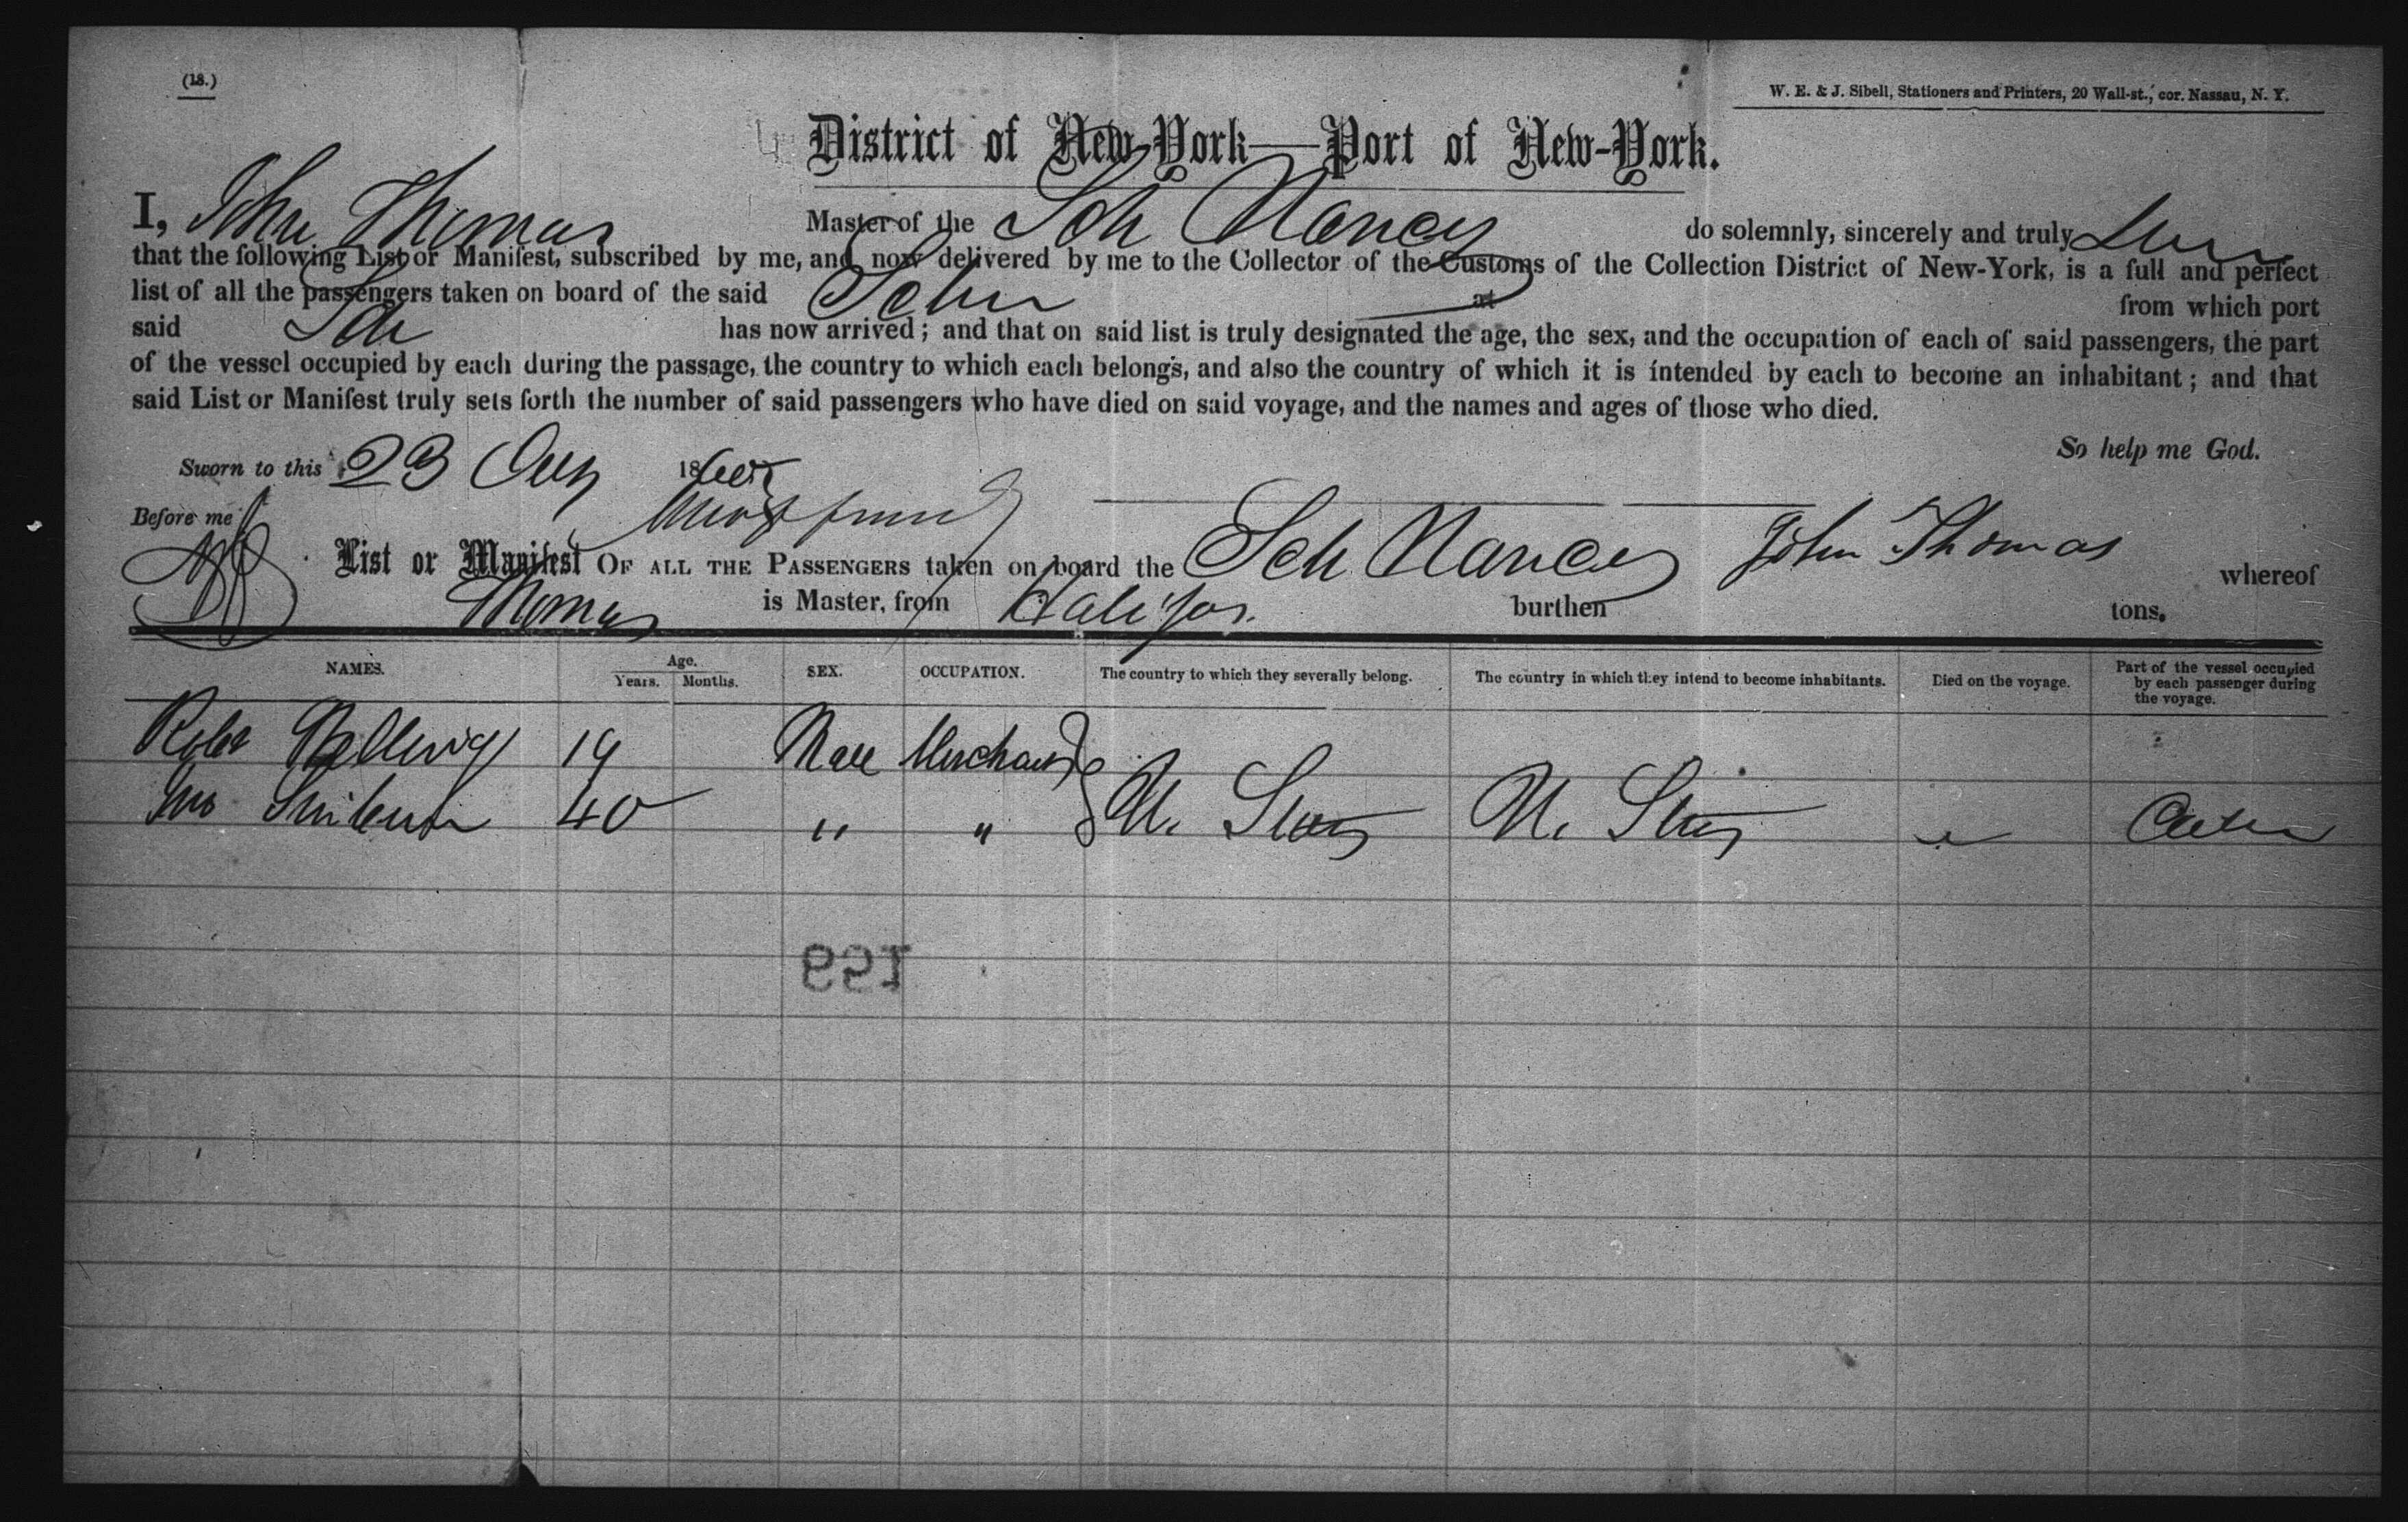 (18.)
W. E. & J. Sibell, Stationers and Printers, 20 Wall-st., cor. Nassau, N. Y.
District of New-York—Port of New-York.
I, John Thomas Master of the Sch Nancy do solemnly, sincerely and truly
that the following List or Manifest, subscribed by me, and now delivered by me to the Collector of the Customs of the Collection District of New-York, is a full and perfect
list of all the passengers taken on board of the said Schr at from which port
said Sch has now arrived; and that on said list is truly designated the age, the sex, and the occupation of each of said passengers, the part
of the vessel occupied by each during the passage, the country to which each belongs, and also the country of which it is intended by each to become an inhabitant; and that
said List or Manifest truly sets forth the number of said passengers who have died on said voyage, and the names and ages of those who died.
So help me God.
Sworn to this 23 Aug 186
Before me
John Thomas
List or Manifest OF ALL THE PASSENGERS taken on board the Sch Nancy whereof
Thomas is Master, from Halifax. burthen tons.
NAMES. Age. Years. Months. SEX. OCCUPATION. The country to which they severally belong. The country in which they intend to become inhabitants. Died on the voyage. Part of the vessel occupied by each passenger during the voyage.
Robt 19 Male Merchant
Jno 40 " " U. States U. States
159